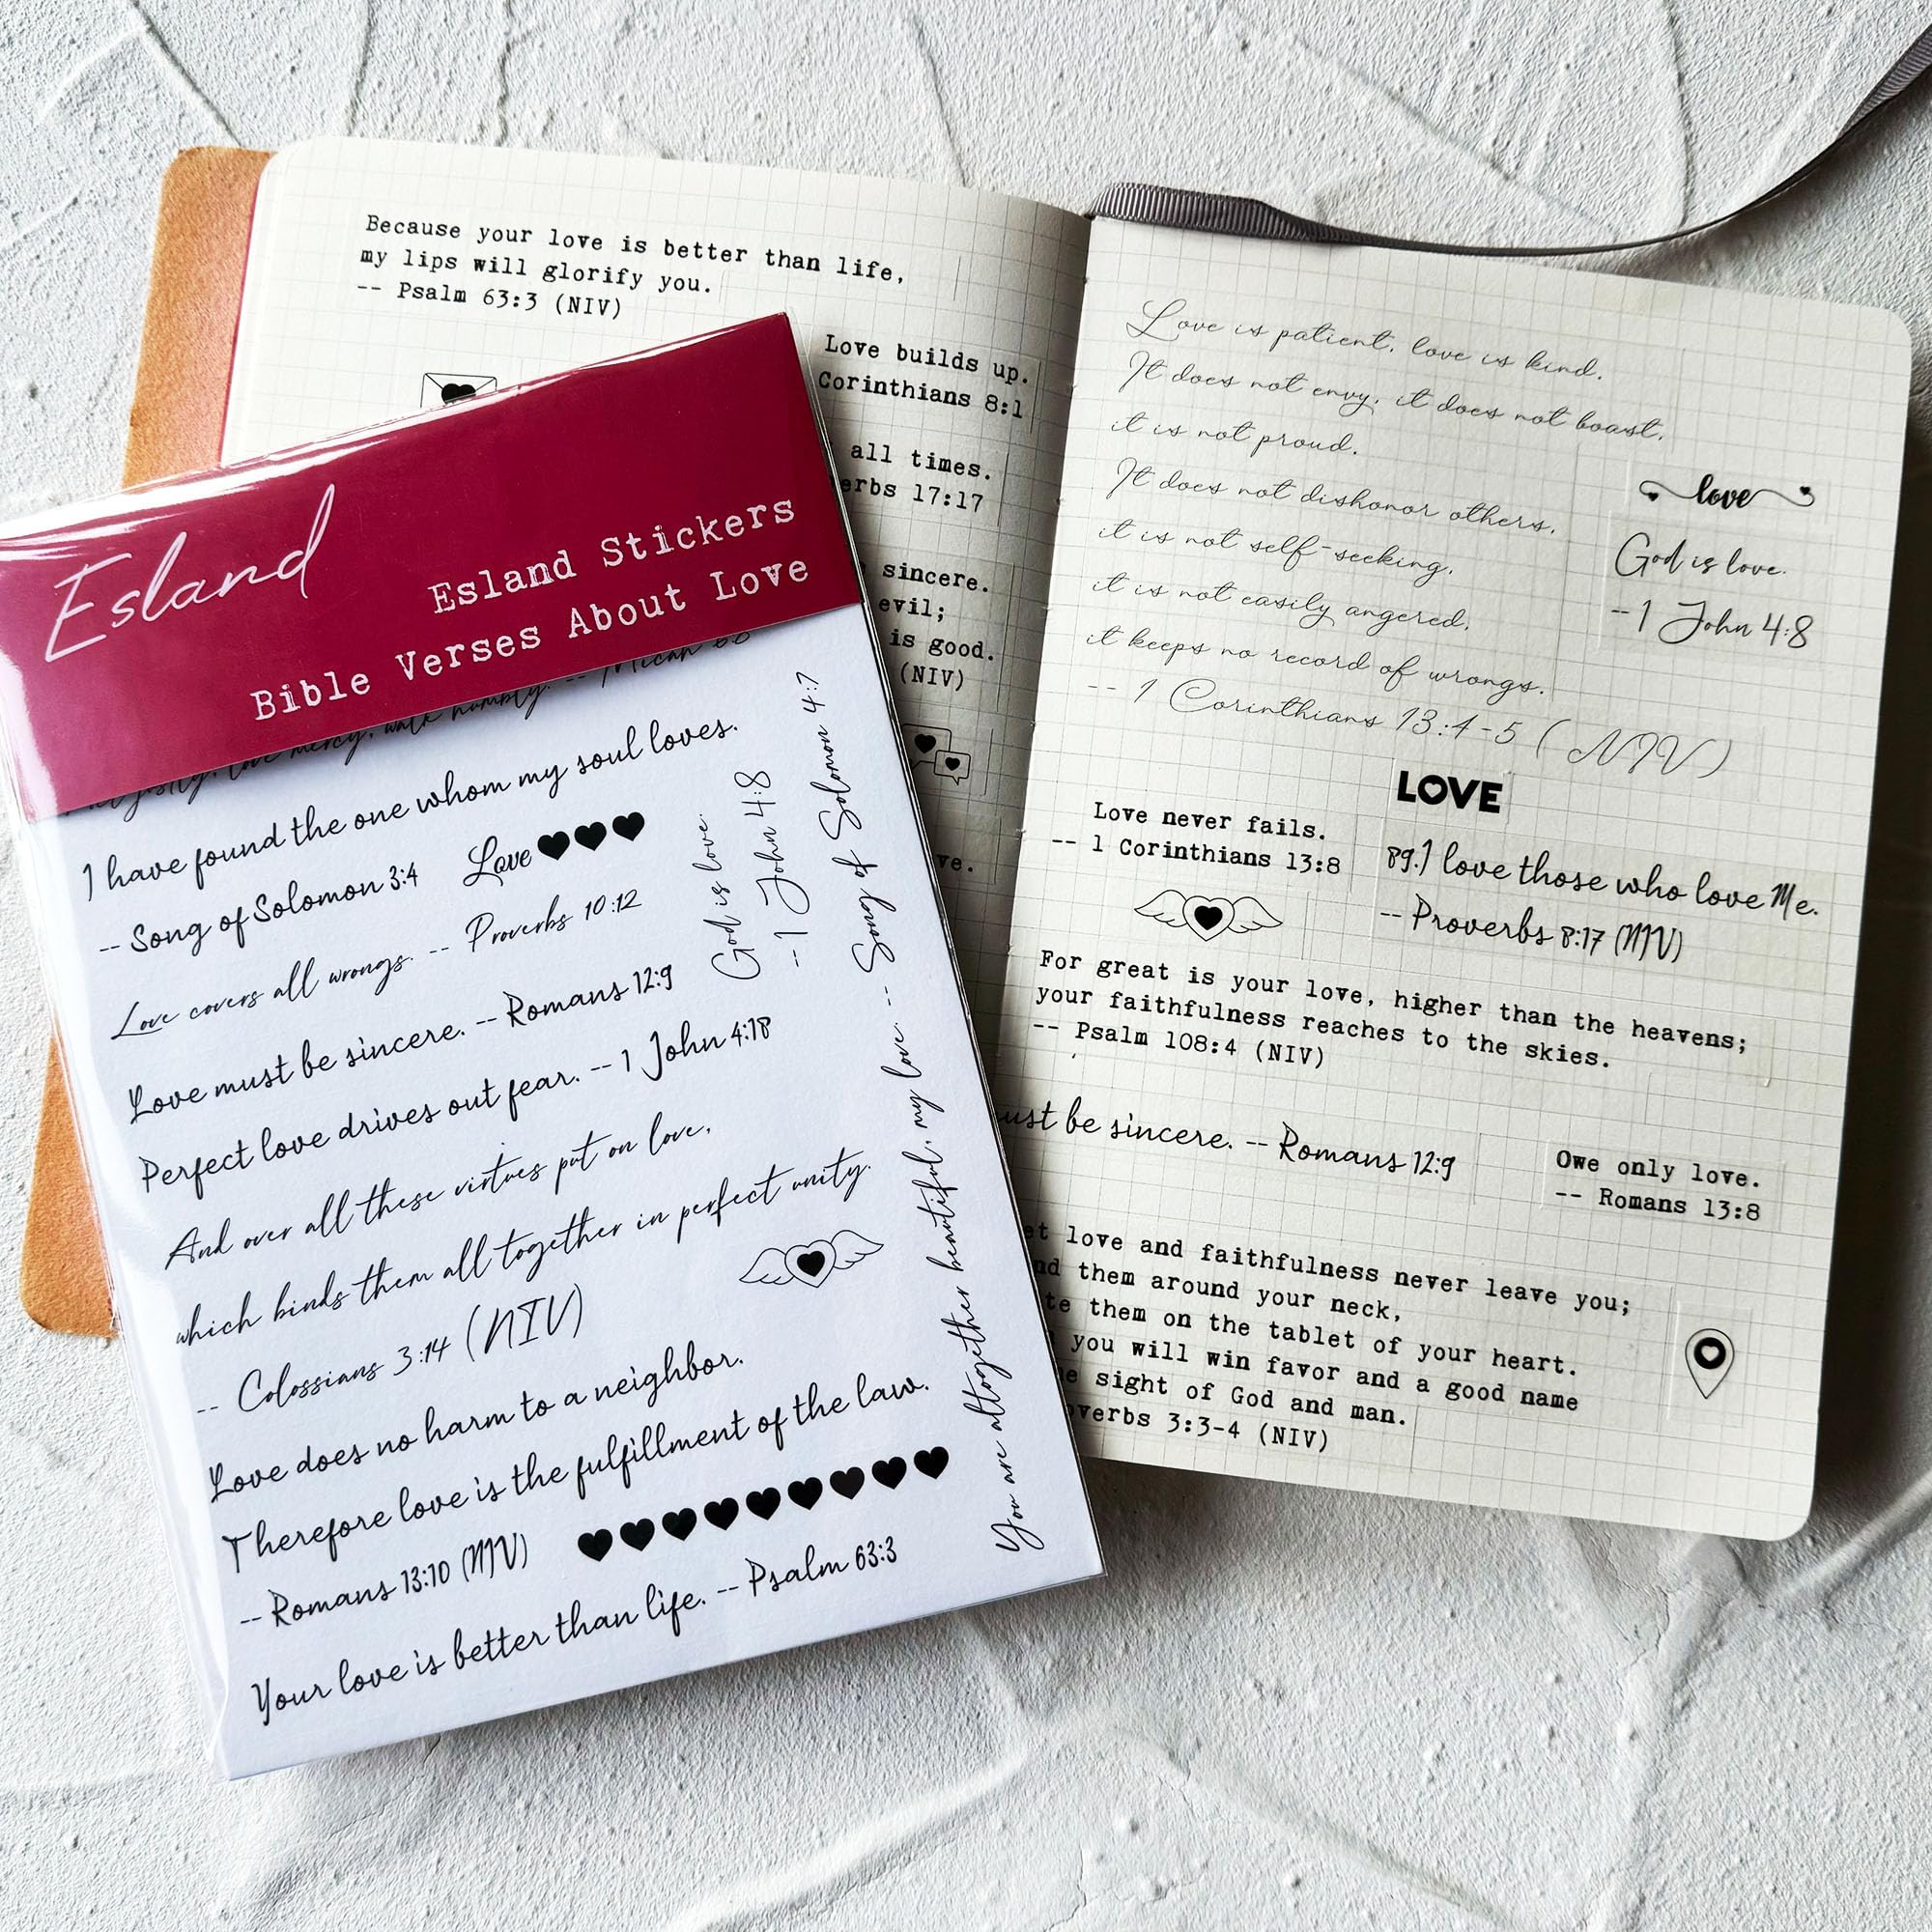 Because your love is better than life,
my lips will glorify you.
-- Psalm 63:3 (NIV)
Love builds up.
Corinthians 8:1
all times.
17:17
sincere.
evil;
is good.
(NIV)
Esland
Esland Stickers
Bible Verses About Love
love mercy, walk humbly. -- Micah 6:8
I have found the one whom my soul loves.
-- Song of Solomon 3:4
Love
Love covers all wrongs. -- Proverbs 10:12
Love must be sincere. -- Romans 12:9
Perfect love drives out fear. -- 1 John 4:18
And over all these virtues put on love,
which binds them all together in perfect unity.
-- Colossians 3:14 (NIV)
Love does no harm to a neighbor.
Therefore love is the fulfillment of the law.
-- Romans 13:10 (NIV)
Your love is better than life. -- Psalm 63:3
God is love.
--1 John 4:8
You are altogether beautiful, my love. -- Song of Solomon 4:7
Love is patient, love is kind.
It does not envy, it does not boast,
it is not proud.
It does not dishonor others,
it is not self-seeking,
it is not easily angered,
it keeps no record of wrongs.
-- 1 Corinthians 13:4-5 (NIV)
love
God is love.
--1 John 4:8
LOVE
Love never fails.
-- 1 Corinthians 13:8
89.I love those who love Me.
-- Proverbs 8:17 (NIV)
For great is your love, higher than the heavens;
your faithfulness reaches to the skies.
-- Psalm 108:4 (NIV)
ust be sincere. -- Romans 12:9
Owe only love.
-- Romans 13:8
love and faithfulness never leave you;
them around your neck,
them on the tablet of your heart.
you will win favor and a good name
sight of God and man.
verbs 3:3-4 (NIV)